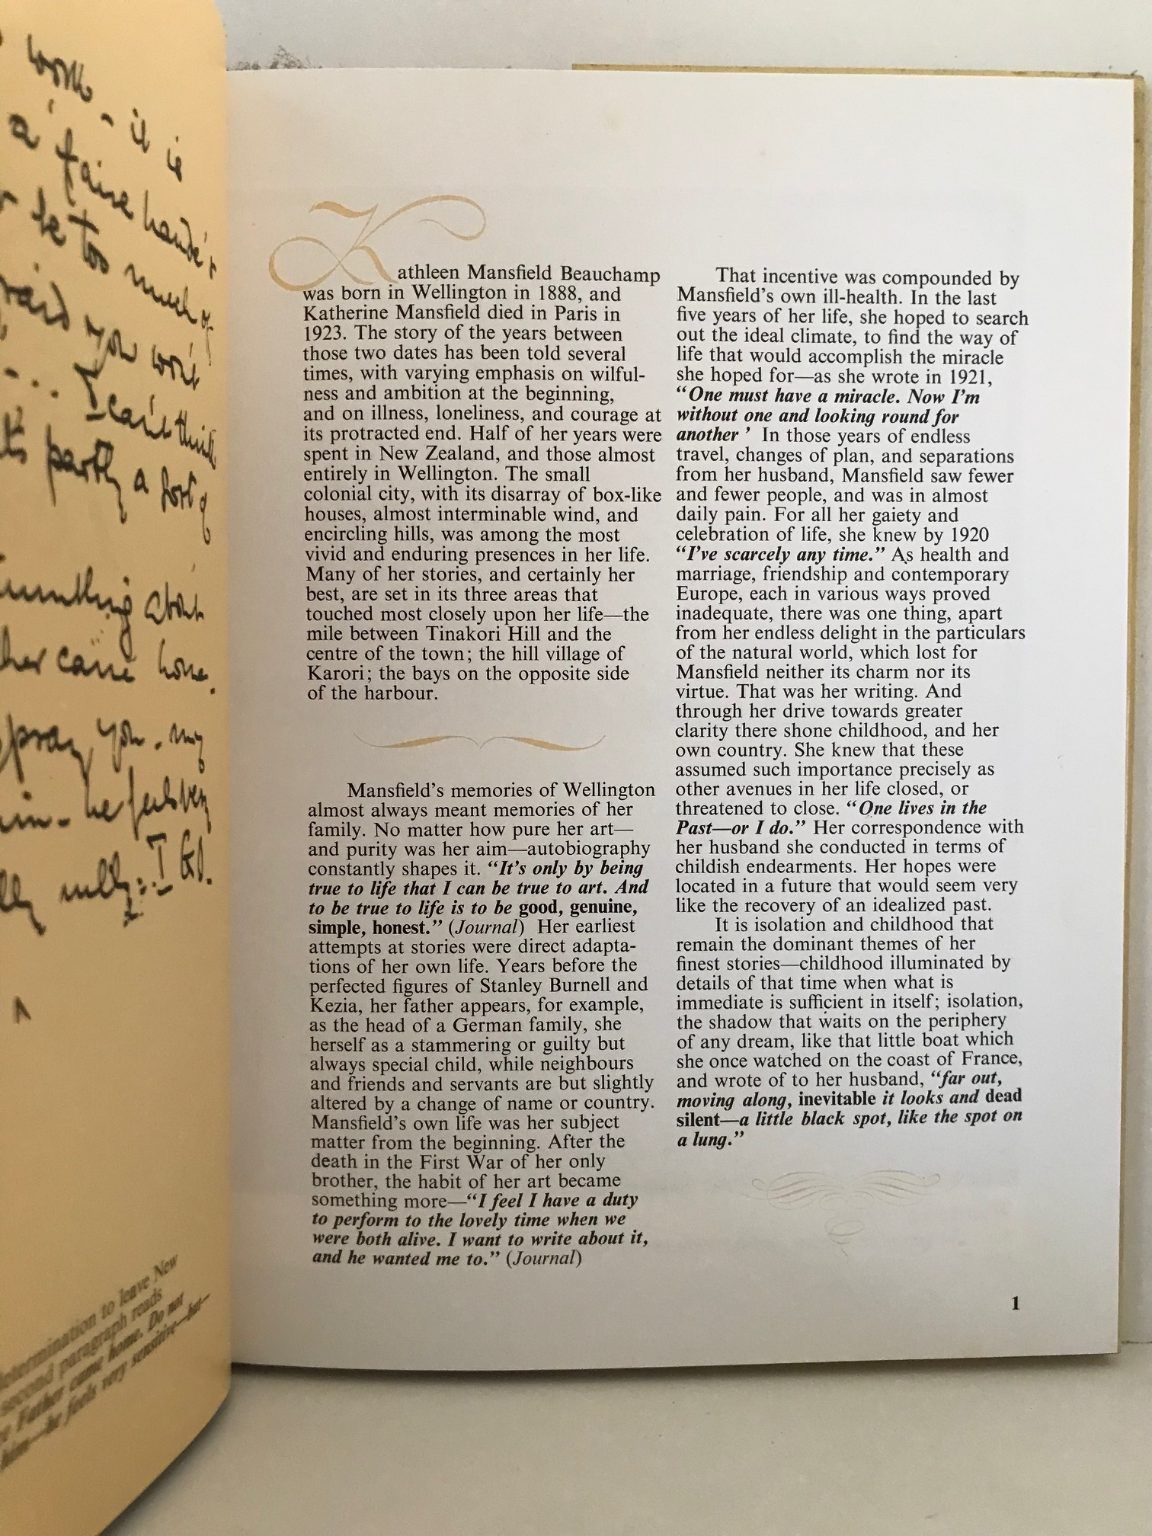 work - it is
a' faire hadn't
be too much of
you won't
... I can't think
partly a sort of
something about
her came home.
pray you - my
him - he feels very
I GO.
determination to leave New
second paragraph reads
Father came home. Do not
him—he feels very sensitive—but—
Kathleen Mansfield Beauchamp
was born in Wellington in 1888, and
Katherine Mansfield died in Paris in
1923. The story of the years between
those two dates has been told several
times, with varying emphasis on wilful-
ness and ambition at the beginning,
and on illness, loneliness, and courage at
its protracted end. Half of her years were
spent in New Zealand, and those almost
entirely in Wellington. The small
colonial city, with its disarray of box-like
houses, almost interminable wind, and
encircling hills, was among the most
vivid and enduring presences in her life.
Many of her stories, and certainly her
best, are set in its three areas that
touched most closely upon her life—the
mile between Tinakori Hill and the
centre of the town; the hill village of
Karori; the bays on the opposite side
of the harbour.
Mansfield's memories of Wellington
almost always meant memories of her
family. No matter how pure her art—
and purity was her aim—autobiography
constantly shapes it. “It's only by being
true to life that I can be true to art. And
to be true to life is to be good, genuine,
simple, honest.” (Journal) Her earliest
attempts at stories were direct adapta-
tions of her own life. Years before the
perfected figures of Stanley Burnell and
Kezia, her father appears, for example,
as the head of a German family, she
herself as a stammering or guilty but
always special child, while neighbours
and friends and servants are but slightly
altered by a change of name or country.
Mansfield's own life was her subject
matter from the beginning. After the
death in the First War of her only
brother, the habit of her art became
something more—“I feel I have a duty
to perform to the lovely time when we
were both alive. I want to write about it,
and he wanted me to.” (Journal)
That incentive was compounded by
Mansfield's own ill-health. In the last
five years of her life, she hoped to search
out the ideal climate, to find the way of
life that would accomplish the miracle
she hoped for—as she wrote in 1921,
“One must have a miracle. Now I'm
without one and looking round for
another ’ In those years of endless
travel, changes of plan, and separations
from her husband, Mansfield saw fewer
and fewer people, and was in almost
daily pain. For all her gaiety and
celebration of life, she knew by 1920
“I've scarcely any time.” As health and
marriage, friendship and contemporary
Europe, each in various ways proved
inadequate, there was one thing, apart
from her endless delight in the particulars
of the natural world, which lost for
Mansfield neither its charm nor its
virtue. That was her writing. And
through her drive towards greater
clarity there shone childhood, and her
own country. She knew that these
assumed such importance precisely as
other avenues in her life closed, or
threatened to close. “One lives in the
Past—or I do.” Her correspondence with
her husband she conducted in terms of
childish endearments. Her hopes were
located in a future that would seem very
like the recovery of an idealized past.
It is isolation and childhood that
remain the dominant themes of her
finest stories—childhood illuminated by
details of that time when what is
immediate is sufficient in itself; isolation,
the shadow that waits on the periphery
of any dream, like that little boat which
she once watched on the coast of France,
and wrote of to her husband, “far out,
moving along, inevitable it looks and dead
silent—a little black spot, like the spot on
a lung.”
1